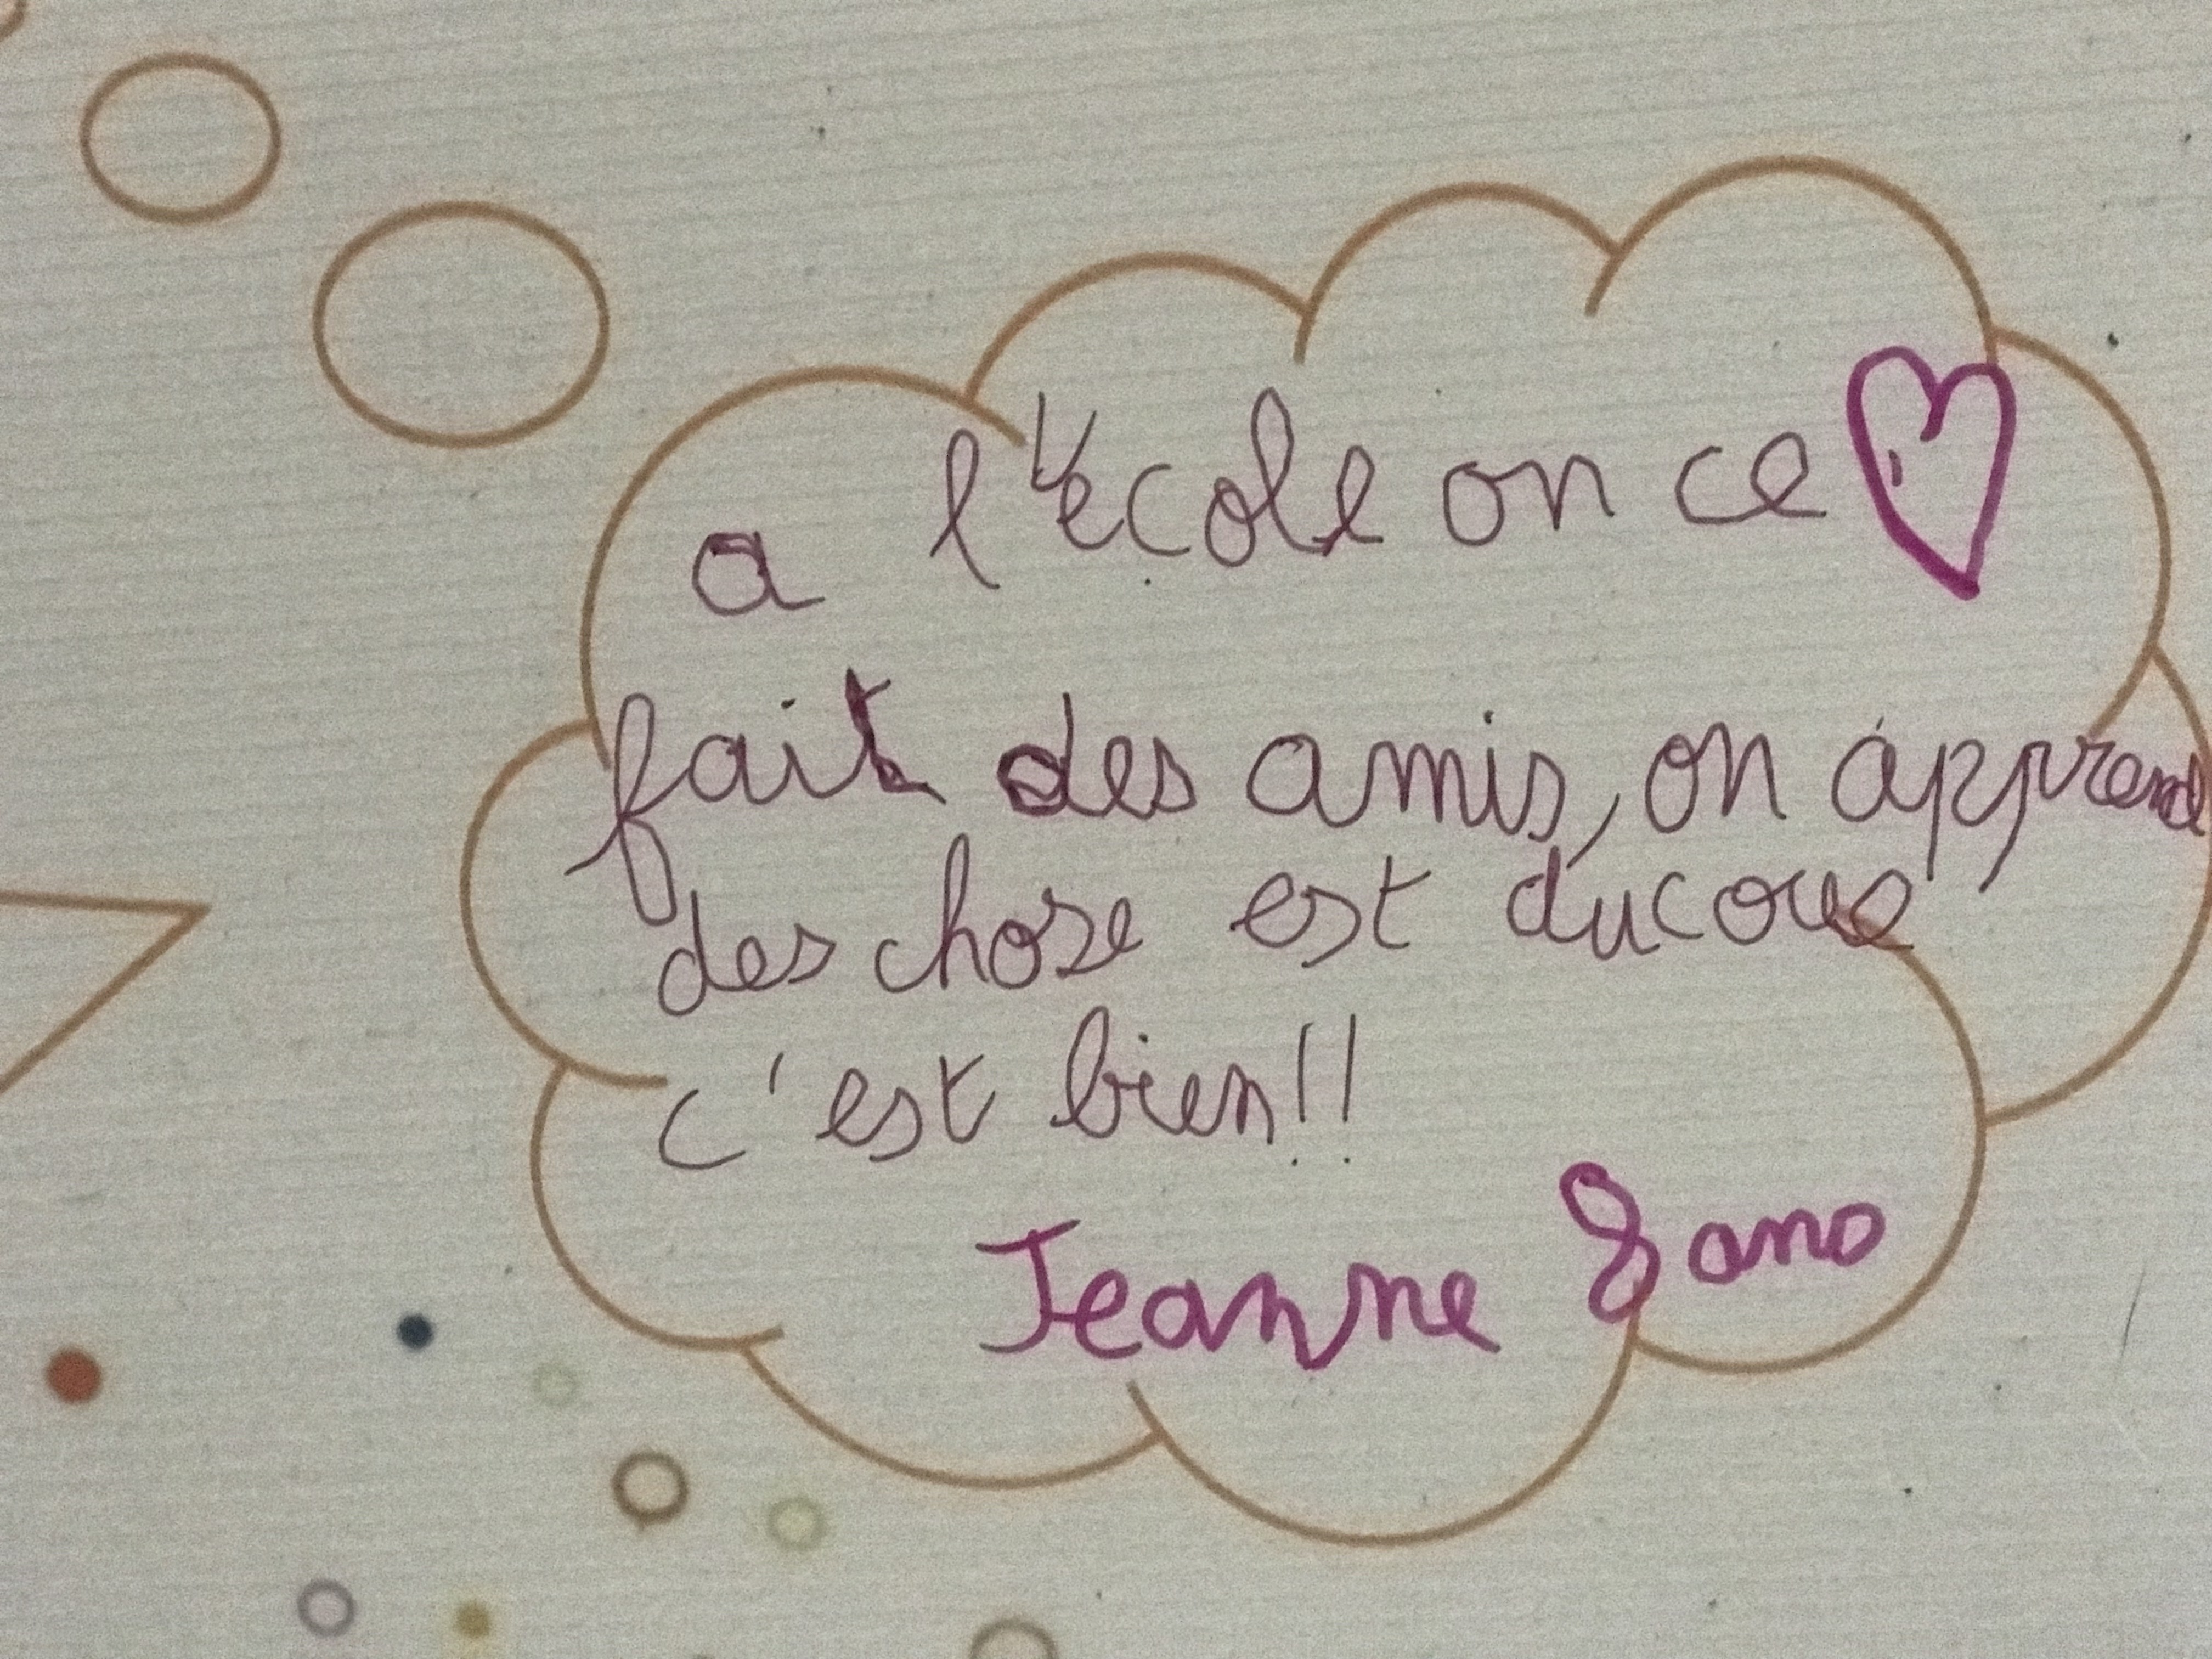 a l'école on ce
fait des amis, on apprend
des chose est ducoue
c'est bien!!
Jeanne 8 ans